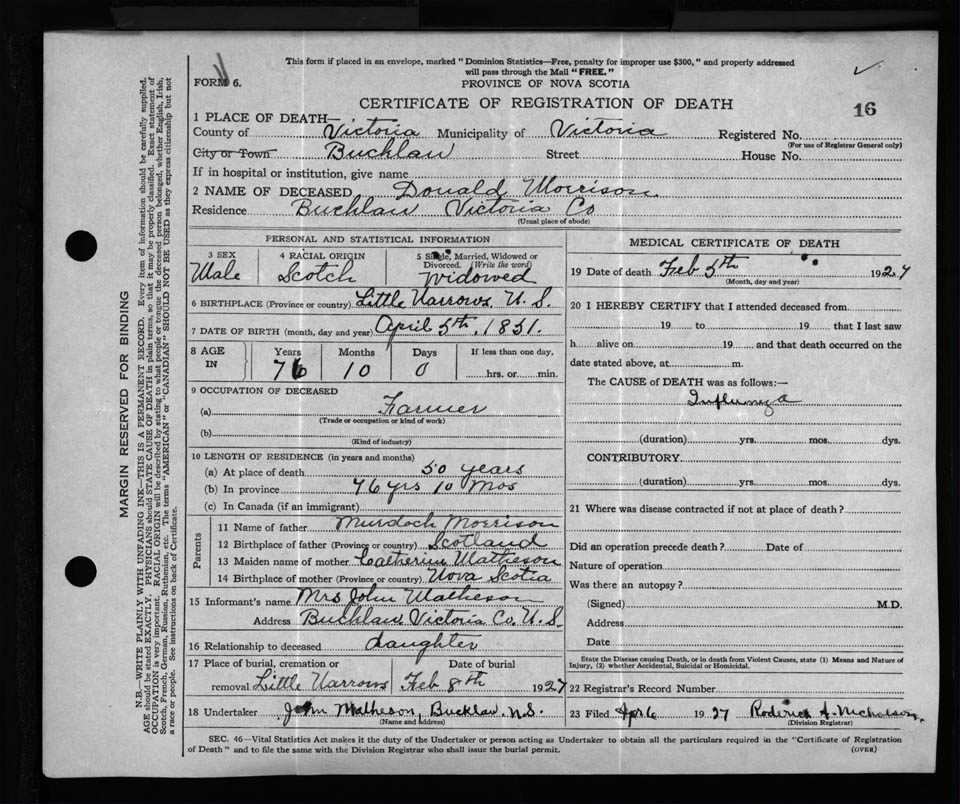 This form if placed in an envelope, marked "Dominion Statistics—Free, penalty for improper use $300," and properly addressed
will pass through the Mail "FREE."
FORM 6.
PROVINCE OF NOVA SCOTIA
CERTIFICATE OF REGISTRATION OF DEATH
16
1 PLACE OF DEATH—
County of Victoria Municipality of Victoria Registered No.
(For use of Registrar General only)
City or Town Bucklaw Street House No.
If in hospital or institution, give name
2 NAME OF DECEASED Donald Morrison
Residence Bucklaw Victoria Co
(Usual place of abode)
PERSONAL AND STATISTICAL INFORMATION
3 SEX 4 RACIAL ORIGIN 5 Single, Married, Widowed or
Divorced. (Write the word)
Male Scotch Widowed
6 BIRTHPLACE (Province or country) Little Narrows, N. S.
7 DATE OF BIRTH (month, day and year) April 5th, 1851.
8 AGE IN Years Months Days If less than one day,
76 10 0 hrs. or min.
9 OCCUPATION OF DECEASED
(a) Farmer
(Trade or occupation or kind of work)
(b)
(Kind of industry)
10 LENGTH OF RESIDENCE (in years and months)
(a) At place of death 50 years
(b) In province 76 yrs 10 Mos
(c) In Canada (if an immigrant)
Parents
11 Name of father Murdoch Morrison
12 Birthplace of father (Province or country) Scotland
13 Maiden name of mother Catherine Matheson
14 Birthplace of mother (Province or country) Nova Scotia
15 Informant's name Mrs John Matheson
Address Bucklaw, Victoria Co, N. S.
16 Relationship to deceased daughter
17 Place of burial, cremation or Date of burial
removal Little Narrows Feb 8th 1927
18 Undertaker John Matheson, Bucklaw, N.S.
(Name and Address)
MEDICAL CERTIFICATE OF DEATH
19 Date of death Feb 5th 1927
(Month, day and year)
20 I HEREBY CERTIFY that I attended deceased from
19 to 19 that I last saw
h alive on 19 and that death occurred on the
date stated above, at m.
The CAUSE of DEATH was as follows:—
Influenza
(duration) yrs. mos. dys.
CONTRIBUTORY
(duration) yrs. mos. dys.
21 Where was disease contracted if not at place of death?
Did an operation precede death? Date of
Nature of operation
Was there an autopsy?
(Signed) M.D.
Address
Date
State the Disease causing Death, or in death from Violent Causes, state (1) Means and Nature of
Injury, (2) whether Accidental, Suicidal or Homicidal.
22 Registrar's Record Number
23 Filed Apr 6 1927 Roderick A. Nicholson
(Division Registrar)
SEC. 46—Vital Statistics Act makes it the duty of the Undertaker or person acting as Undertaker to obtain all the particulars required in the "Certificate of Registration
of Death" and to file the same with the Division Registrar who shall issue the burial permit. (OVER)
MARGIN RESERVED FOR BINDING
N.B.—WRITE PLAINLY WITH UNFADING INK—THIS IS A PERMANENT RECORD. Every item of information should be carefully supplied.
AGE should be stated EXACTLY. PHYSICIANS should STATE CAUSE OF DEATH in plain terms, so that it may be properly classified. Exact statement of
OCCUPATION is very important. RACIAL ORIGIN will be described by stating to what people or tongue the deceased person belonged, whether English, Irish,
Scotch, French, German, Russian, Ruthenian, etc. The terms "AMERICAN" or "CANADIAN" SHOULD NOT BE USED as they express citizenship but not
a race or people. See instructions on back of Certificate.